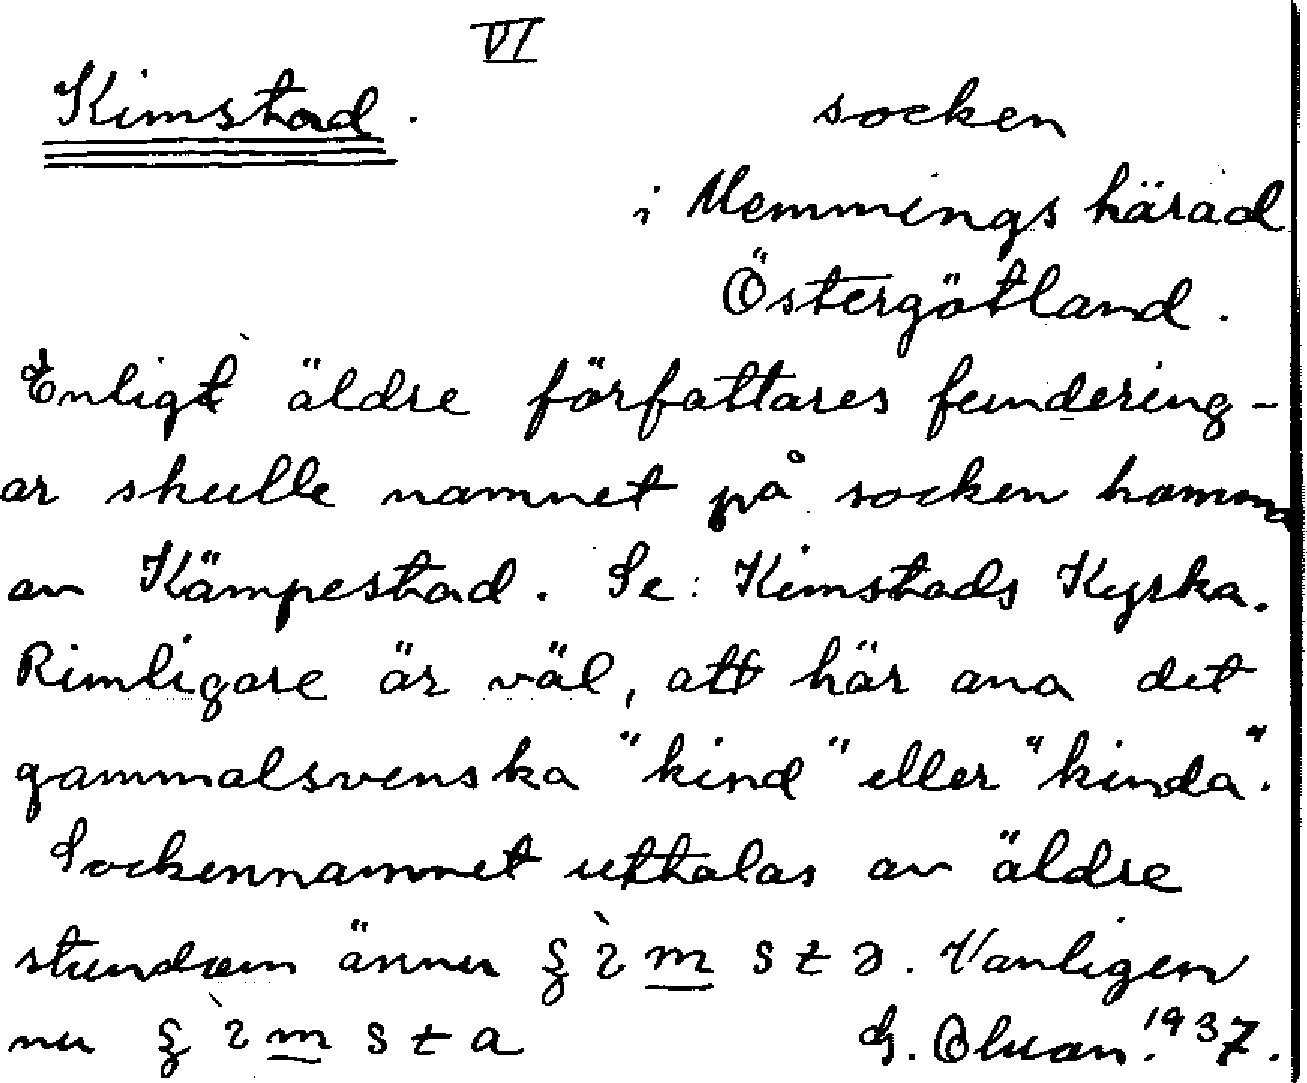 VI
Kimstad.
socken
i Memmings härad
Östergötland.
Enligt äldre författares fundering-
ar skulle namnet på socken komma
av Kämpestad. Se: Kimstads Kyrka.
Rimligare är väl, att här ana det
gammalsvenska "kind" eller "kinda".
Sockennamnet uttalas av äldre
stundom ännu ʂ ì m s t ə. Vanligen
nu ʂ ì m s t a
G. 1937.